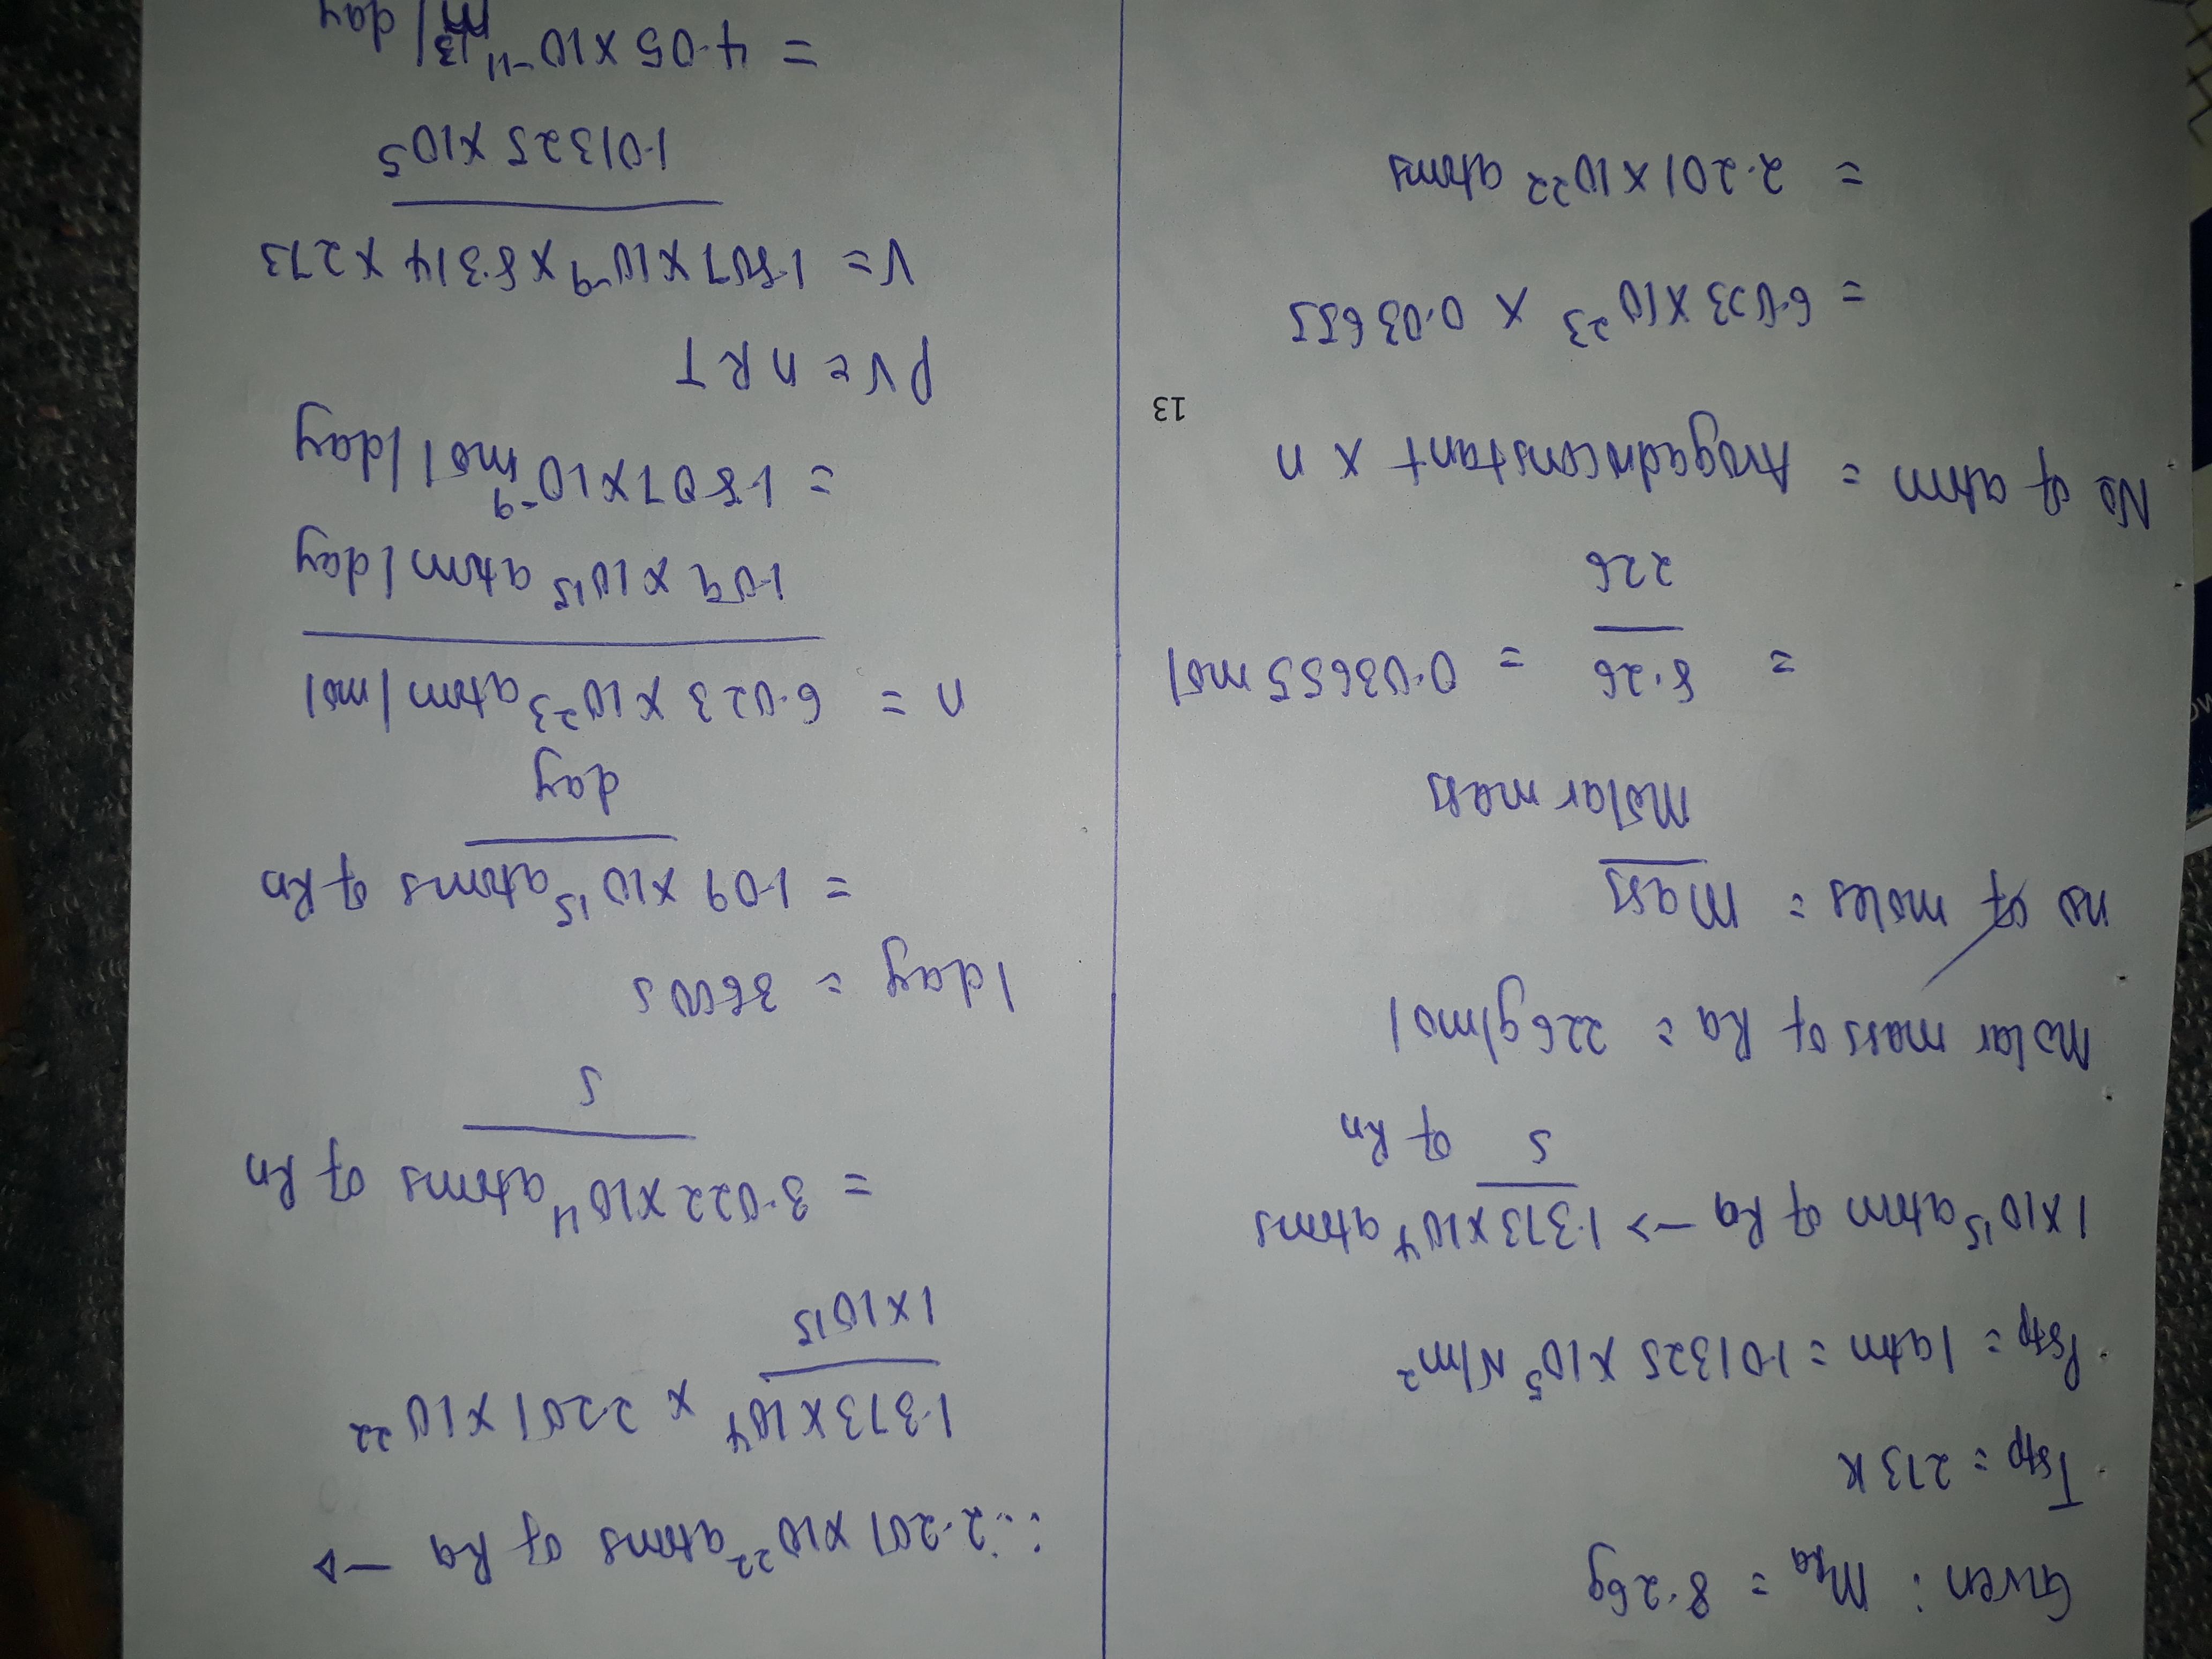 Given: MRa = 8.26g
Tstp = 273 K
Pstp = 1 atm = 1.01325 × 10⁵ N/m²
1×10¹⁵ atom of Ra → 1.373×10⁴ atoms
s of Rn
Molar mass of Ra = 226g/mol
no of moles = mass
Molar mass
= 8.26 = 0.03655 mol
226
No of atom = Avogadro constant × n
= 6.023×10²³ × 0.03655
= 2.201×10²² atoms
13
∴ 2.201×10²² atoms of Ra →
1.373×10⁴ × 2.201×10²²
1×10¹⁵
= 3.022×10¹¹ atoms of Rn
s
1 day = 3600 s
= 1.09×10¹⁵ atoms of Rn
day
n = 6.023×10²³ atom/mol
1.09×10¹⁵ atom/day
= 1.807×10⁻⁹ mol/day
PV = nRT
V = 1.807×10⁻⁹×8.314×273
1.01325×10⁵
= 4.05×10⁻¹¹ m³/day